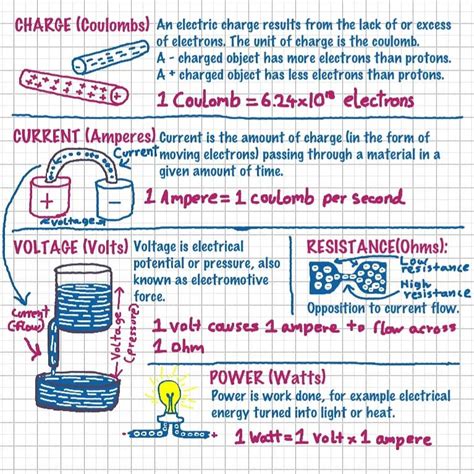 CHARGE (Coulombs)
An electric charge results from the lack of or excess
of electrons. The unit of charge is the coulomb.
A - charged object has more electrons than protons.
A + charged object has less electrons than protons.
- - - - -
+ + + + +
1 Coulomb = 6.24x10¹⁸ electrons
CURRENT (Amperes)
Current is the amount of charge (in the form of
moving electrons) passing through a material in a
given amount of time.
Current
+
-
voltage
1 Ampere = 1 coulomb per second
VOLTAGE (Volts)
Voltage is electrical
potential or pressure, also
known as electromotive
force.
Current
(flow)
Voltage
(pressure)
1 volt causes 1 ampere to flow across
1 Ohm
RESISTANCE(Ohms):
Low
resistance
High
resistance
Opposition to current flow.
POWER (Watts)
Power is work done, for example electrical
energy turned into light or heat.
1 Watt = 1 Volt x 1 ampere